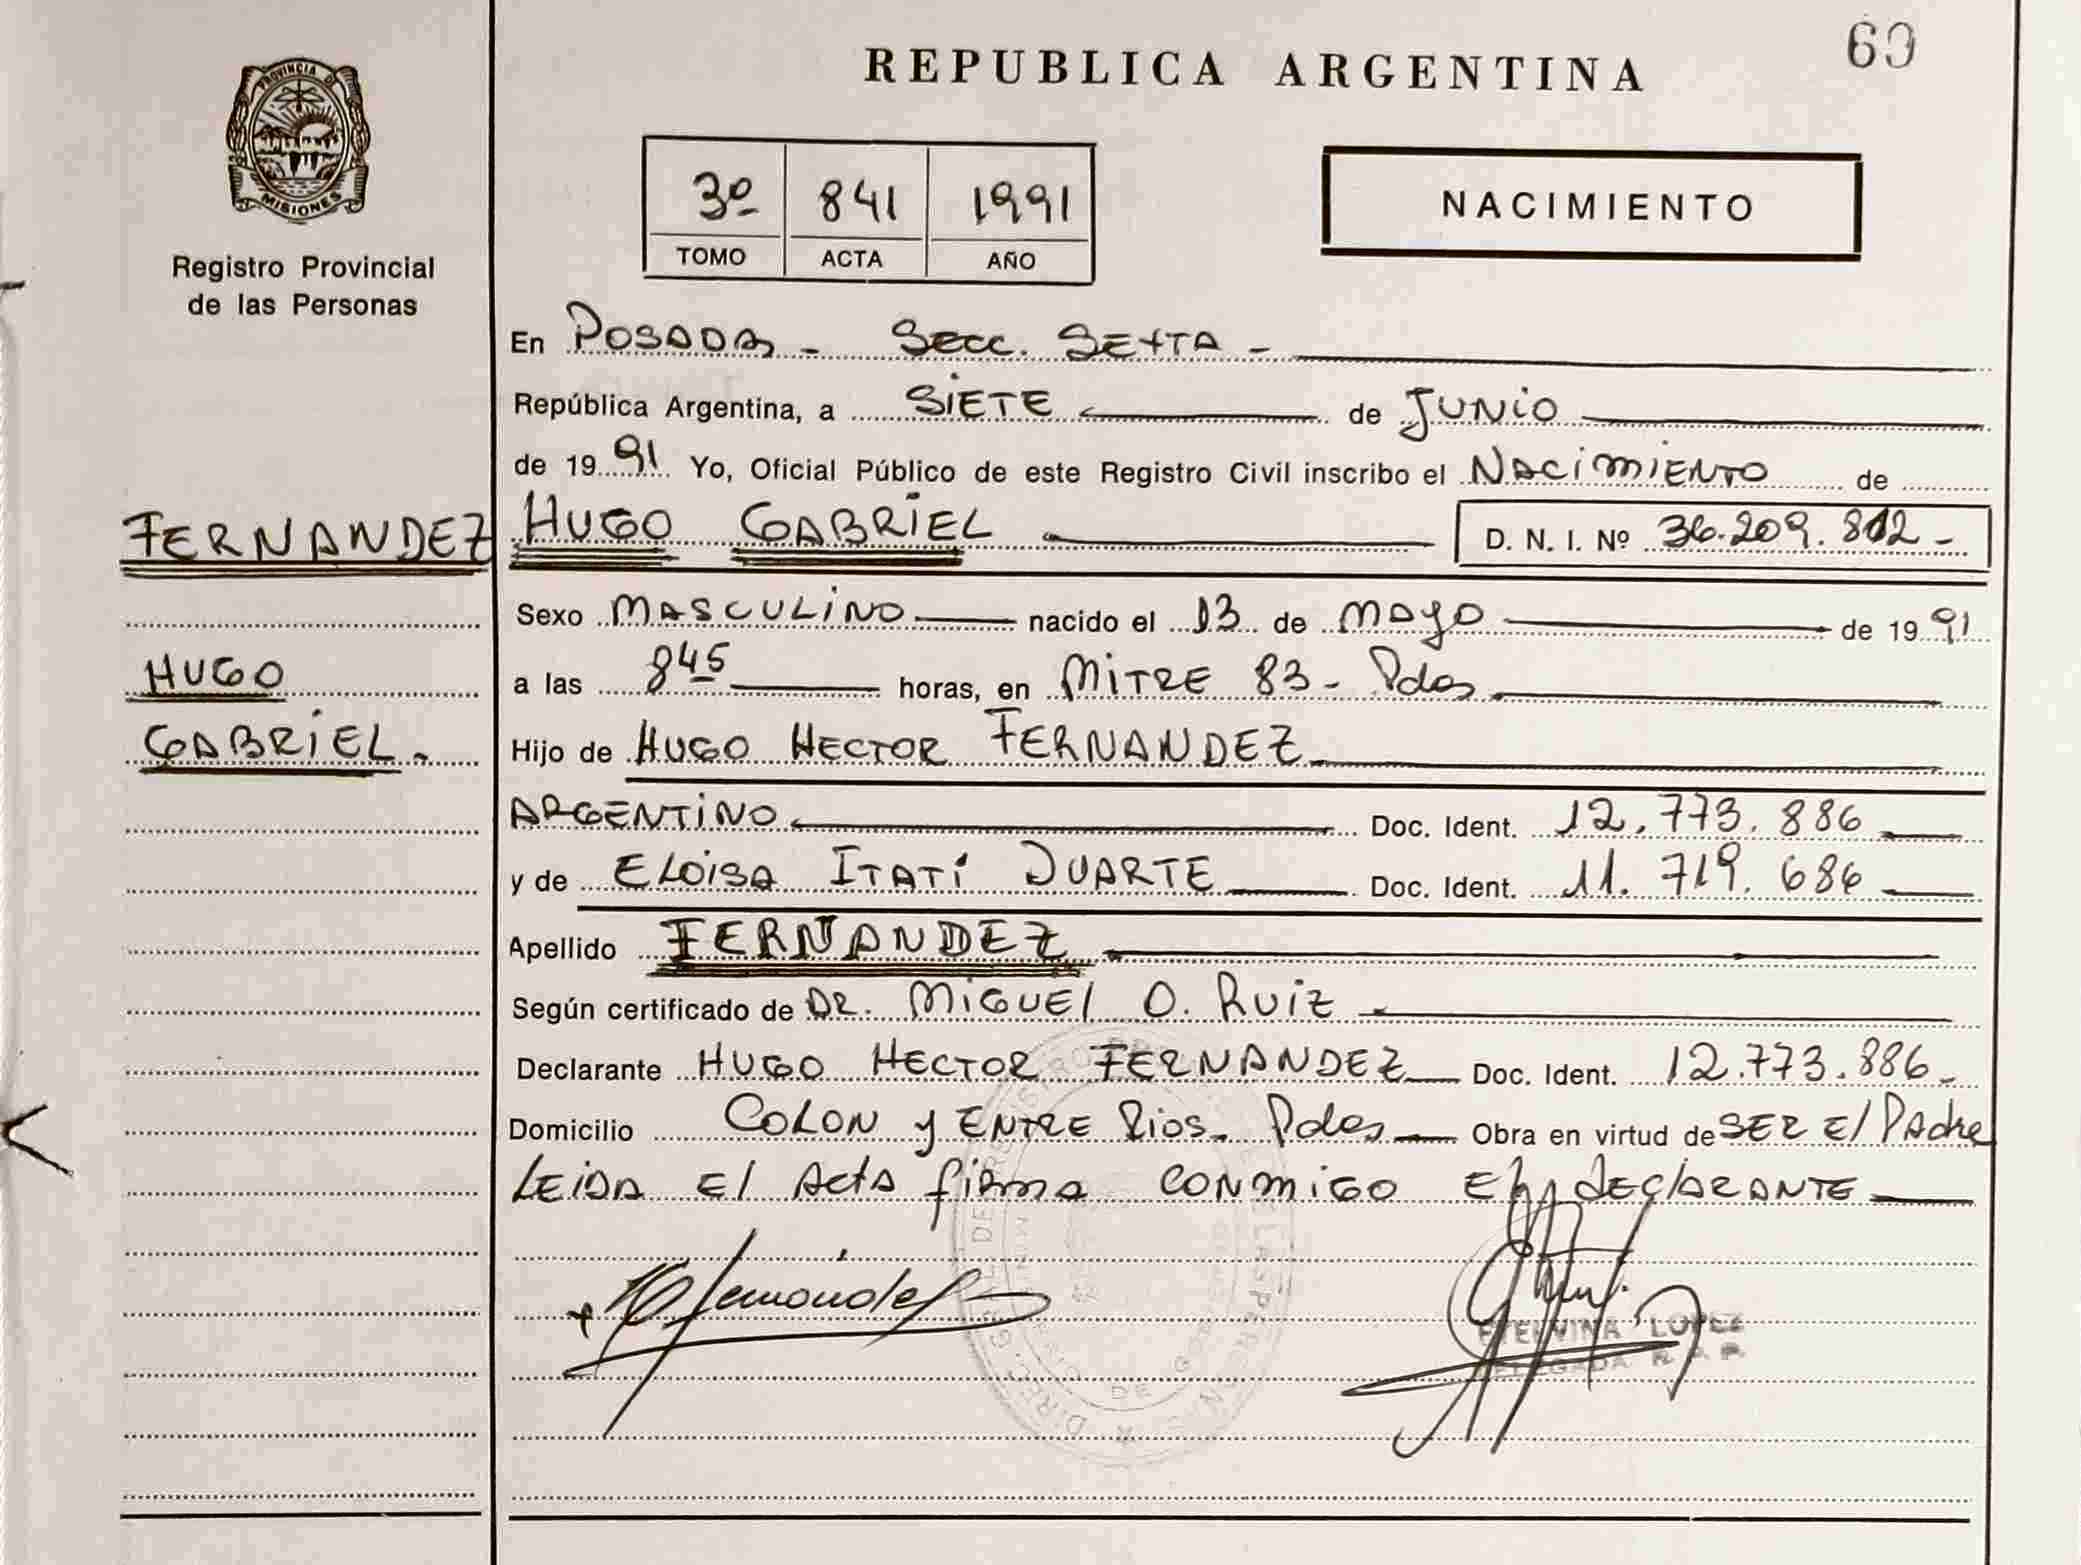 60
REPUBLICA ARGENTINA
PROVINCIA DE
MISIONES
Registro Provincial
de las Personas
3º 841 1991
TOMO ACTA AÑO
NACIMIENTO
En POSADAS - SECC. SEXTA -
República Argentina, a SIETE de JUNIO
de 1991 Yo, Oficial Público de este Registro Civil inscribo el NACIMIENTO de
FERNANDEZ HUGO GABRIEL D. N. I. Nº 36.209.812 -
Sexo MASCULINO nacido el 13 de MAYO de 1991
HUGO
a las 8 45 horas, en MITRE 83 - Pdas
GABRIEL.
Hijo de HUGO HECTOR FERNANDEZ
ARGENTINO Doc. Ident. 12.773.886
y de ELOISA ITATÍ DUARTE Doc. Ident. 11.719.686
Apellido FERNANDEZ
Según certificado de DR. MIGUEL O. RUIZ
Declarante HUGO HECTOR FERNANDEZ Doc. Ident. 12.773.886 -
Domicilio COLON y ENTRE RIOS. Pdas Obra en virtud de SER El PAdre
LEIDA El Acta firma CONMIGO El dEClARANTE
ETELVINA LOPEZ
DELEGADA R. P. P.